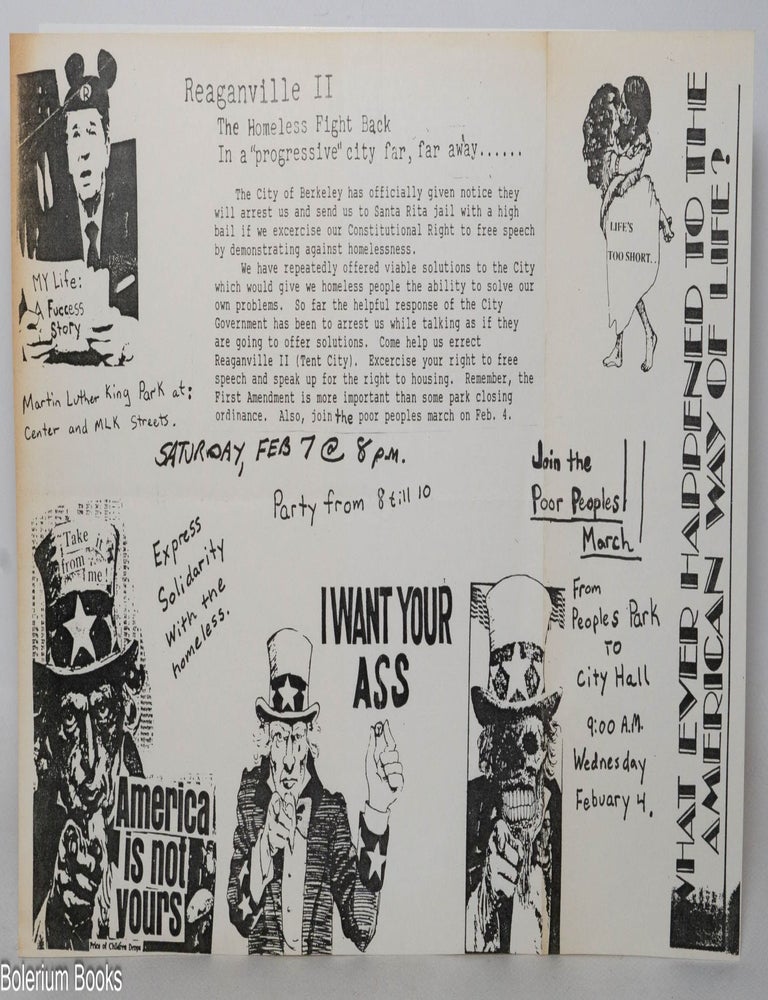 Reaganville II
The Homeless Fight Back
In a "progressive" city far, far away......
The City of Berkeley has officially given notice they
will arrest us and send us to Santa Rita jail with a high
bail if we excercise our Constitutional Right to free speech
by demonstrating against homelessness.
We have repeatedly offered viable solutions to the City
which would give we homeless people the ability to solve our
own problems. So far the helpful response of the City
Government has been to arrest us while talking as if they
are going to offer solutions. Come help us errect
Reaganville II (Tent City). Excercise your right to free
speech and speak up for the right to housing. Remember, the
First Amendment is more important than some park closing
ordinance. Also, join the poor peoples march on Feb. 4.
R
MY Life:
A Fuccess
Story
Martin Luther King Park at:
Center and MLK Streets.
SATURDAY, FEB 7 @ 8 P.M.
Party from 8 till 10
Express
Solidarity
With the
homeless.
Take it
from
me
America
is not
yours
Price of Children Drops
I WANT YOUR
ASS
LIFE'S
TOO SHORT..
Join the
Poor Peoples
March
From
Peoples Park
TO
City Hall
9:00 A.M.
Wednesday
Febuary 4.
WHAT EVER HAPPENED TO THE
AMERICAN WAY OF LIFE?
Bolerium Books